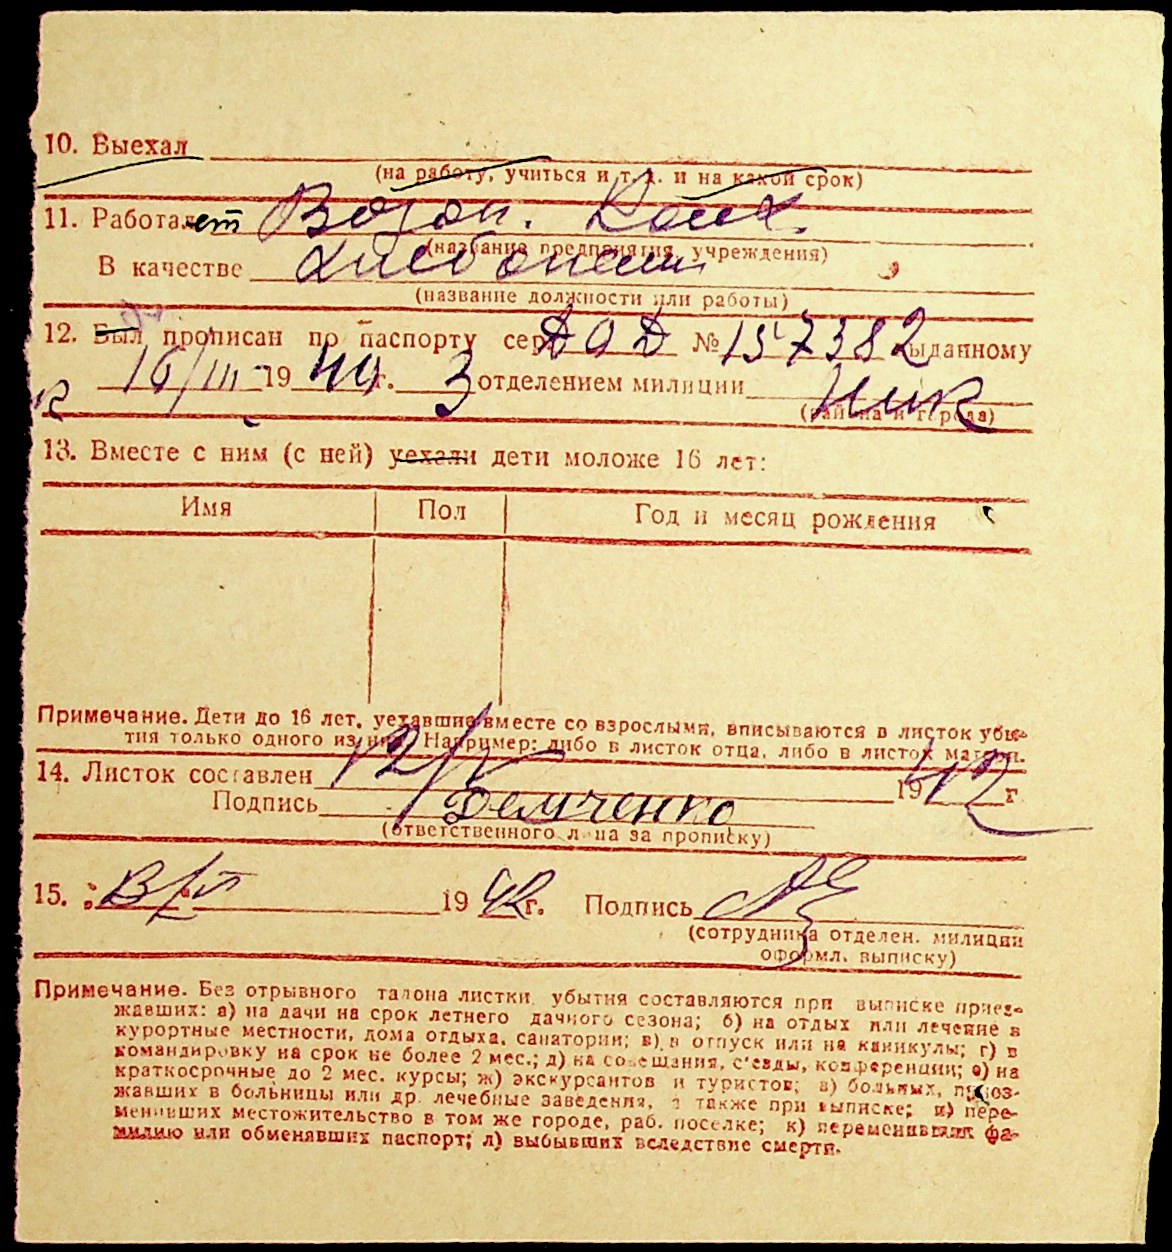 10. Выехал
(на работу, учиться и т. д. и на какой срок)
11. Работает
(название предприятия, учреждения)
В качестве
(название должности или работы)
12. Был прописан по паспорту сер. № 157382 выданному
16/III 1940 г. 3 отделением милиции Ник
(района и города)
13. Вместе с ним (с ней) уехали дети моложе 16 лет:
Имя Пол Год и месяц рождения
Примечание. Дети до 16 лет, уехавшие вместе со взрослыми, вписываются в листок убы-
тия только одного из них. Например: либо в листок отца, либо в листок матери.
14. Листок составлен 12/V 1942 г
Подпись Демченко
(ответственного лица за прописку)
15. 1942 г. Подпись
(сотрудника отделен. милиции
оформл. выписку)
Примечание. Без отрывного талона листки убытия составляются при выписке приез-
жавших: а) на дачи на срок летнего дачного сезона; б) на отдых или лечение в
курортные местности, дома отдыха, санатории; в) в отпуск или на каникулы; г) в
командировку на срок не более 2 мес.; д) на совещания, съезды, конференции; е) на
краткосрочные до 2 мес. курсы; ж) экскурсантов и туристов; з) больных, приез-
жавших в больницы или др. лечебные заведения, а также при выписке; и) пере-
менивших местожительство в том же городе, раб. поселке; к) переменивших фа-
милию или обменявших паспорт; л) выбывших вследствие смерти.